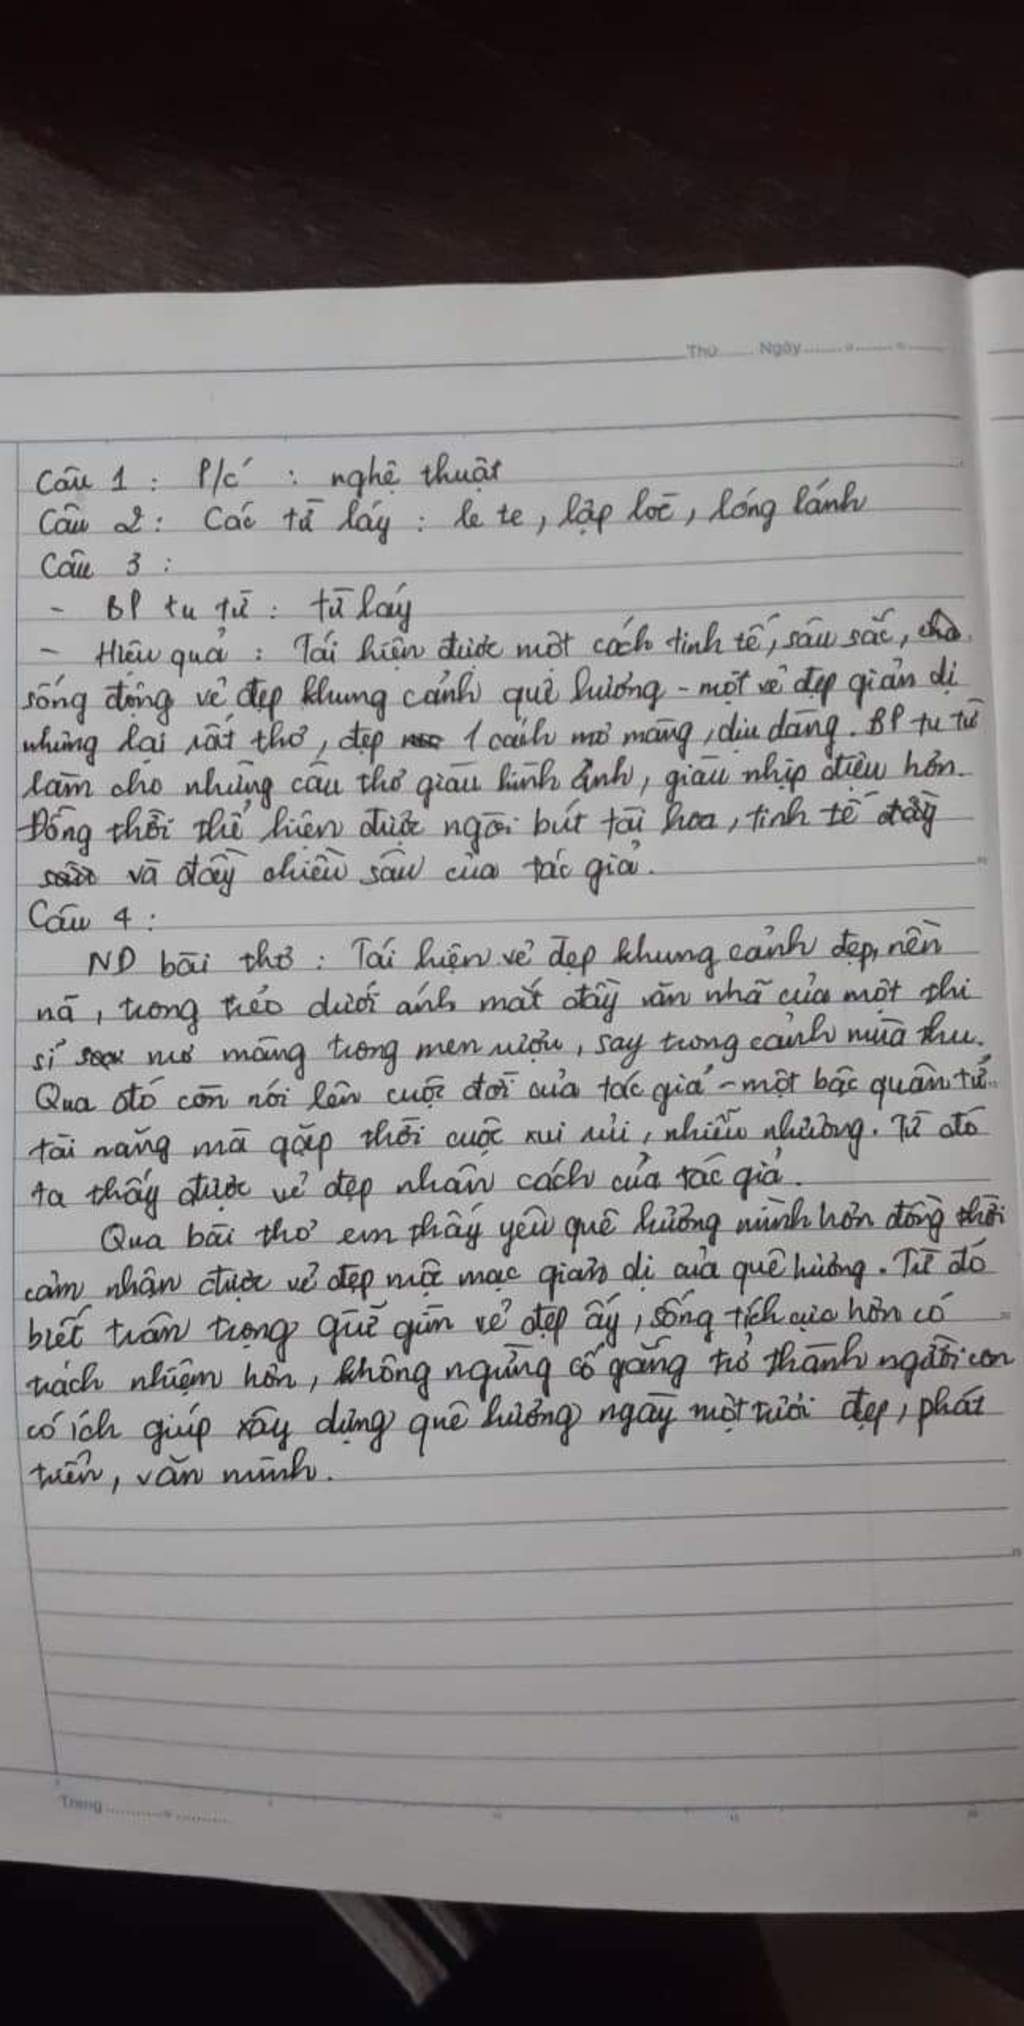 Thứ Ngày
Câu 1 : P/c : nghệ thuật
Câu 2 : Các từ láy : le te, lập loè, lóng lánh
Câu 3 :
- BP tu từ : từ láy
- Hiệu quả : Tái hiện được một cách tinh tế, sâu sắc,
sống động vẻ đẹp khung cảnh quê hương - một vẻ đẹp giản dị
nhưng lại rất thơ, đẹp 1 cách mơ màng, dịu dàng. BP tu từ
làm cho những câu thơ giàu hình ảnh, giàu nhịp điệu hơn.
Đồng thời thể hiện được ngòi bút tài hoa, tinh tế
và đầy chiều sâu của tác giả.
Câu 4 :
ND bài thơ : Tái hiện vẻ đẹp khung cảnh đẹp, nền
nã, trong trẻo dưới ánh mắt đầy văn nhã của một thi
sĩ mơ màng trong men rượu, say trong cảnh mùa thu.
Qua đó còn nói lên cuộc đời của tác giả - một bậc quân tử
tài năng mà gặp thời cuộc xui rủi, nhiễu nhương. Từ đó
ta thấy được vẻ đẹp nhân cách của tác giả.
Qua bài thơ em thấy yêu quê hương mình hơn đồng thời
cảm nhận được vẻ đẹp mộc mạc giản dị của quê hương. Từ đó
biết trân trọng giữ gìn vẻ đẹp ấy, sống tích cực hơn có
trách nhiệm hơn, không ngừng cố gắng trở thành người con
có ích giúp xây dựng quê hương ngày một tươi đẹp, phát
triển, văn minh.
Trang